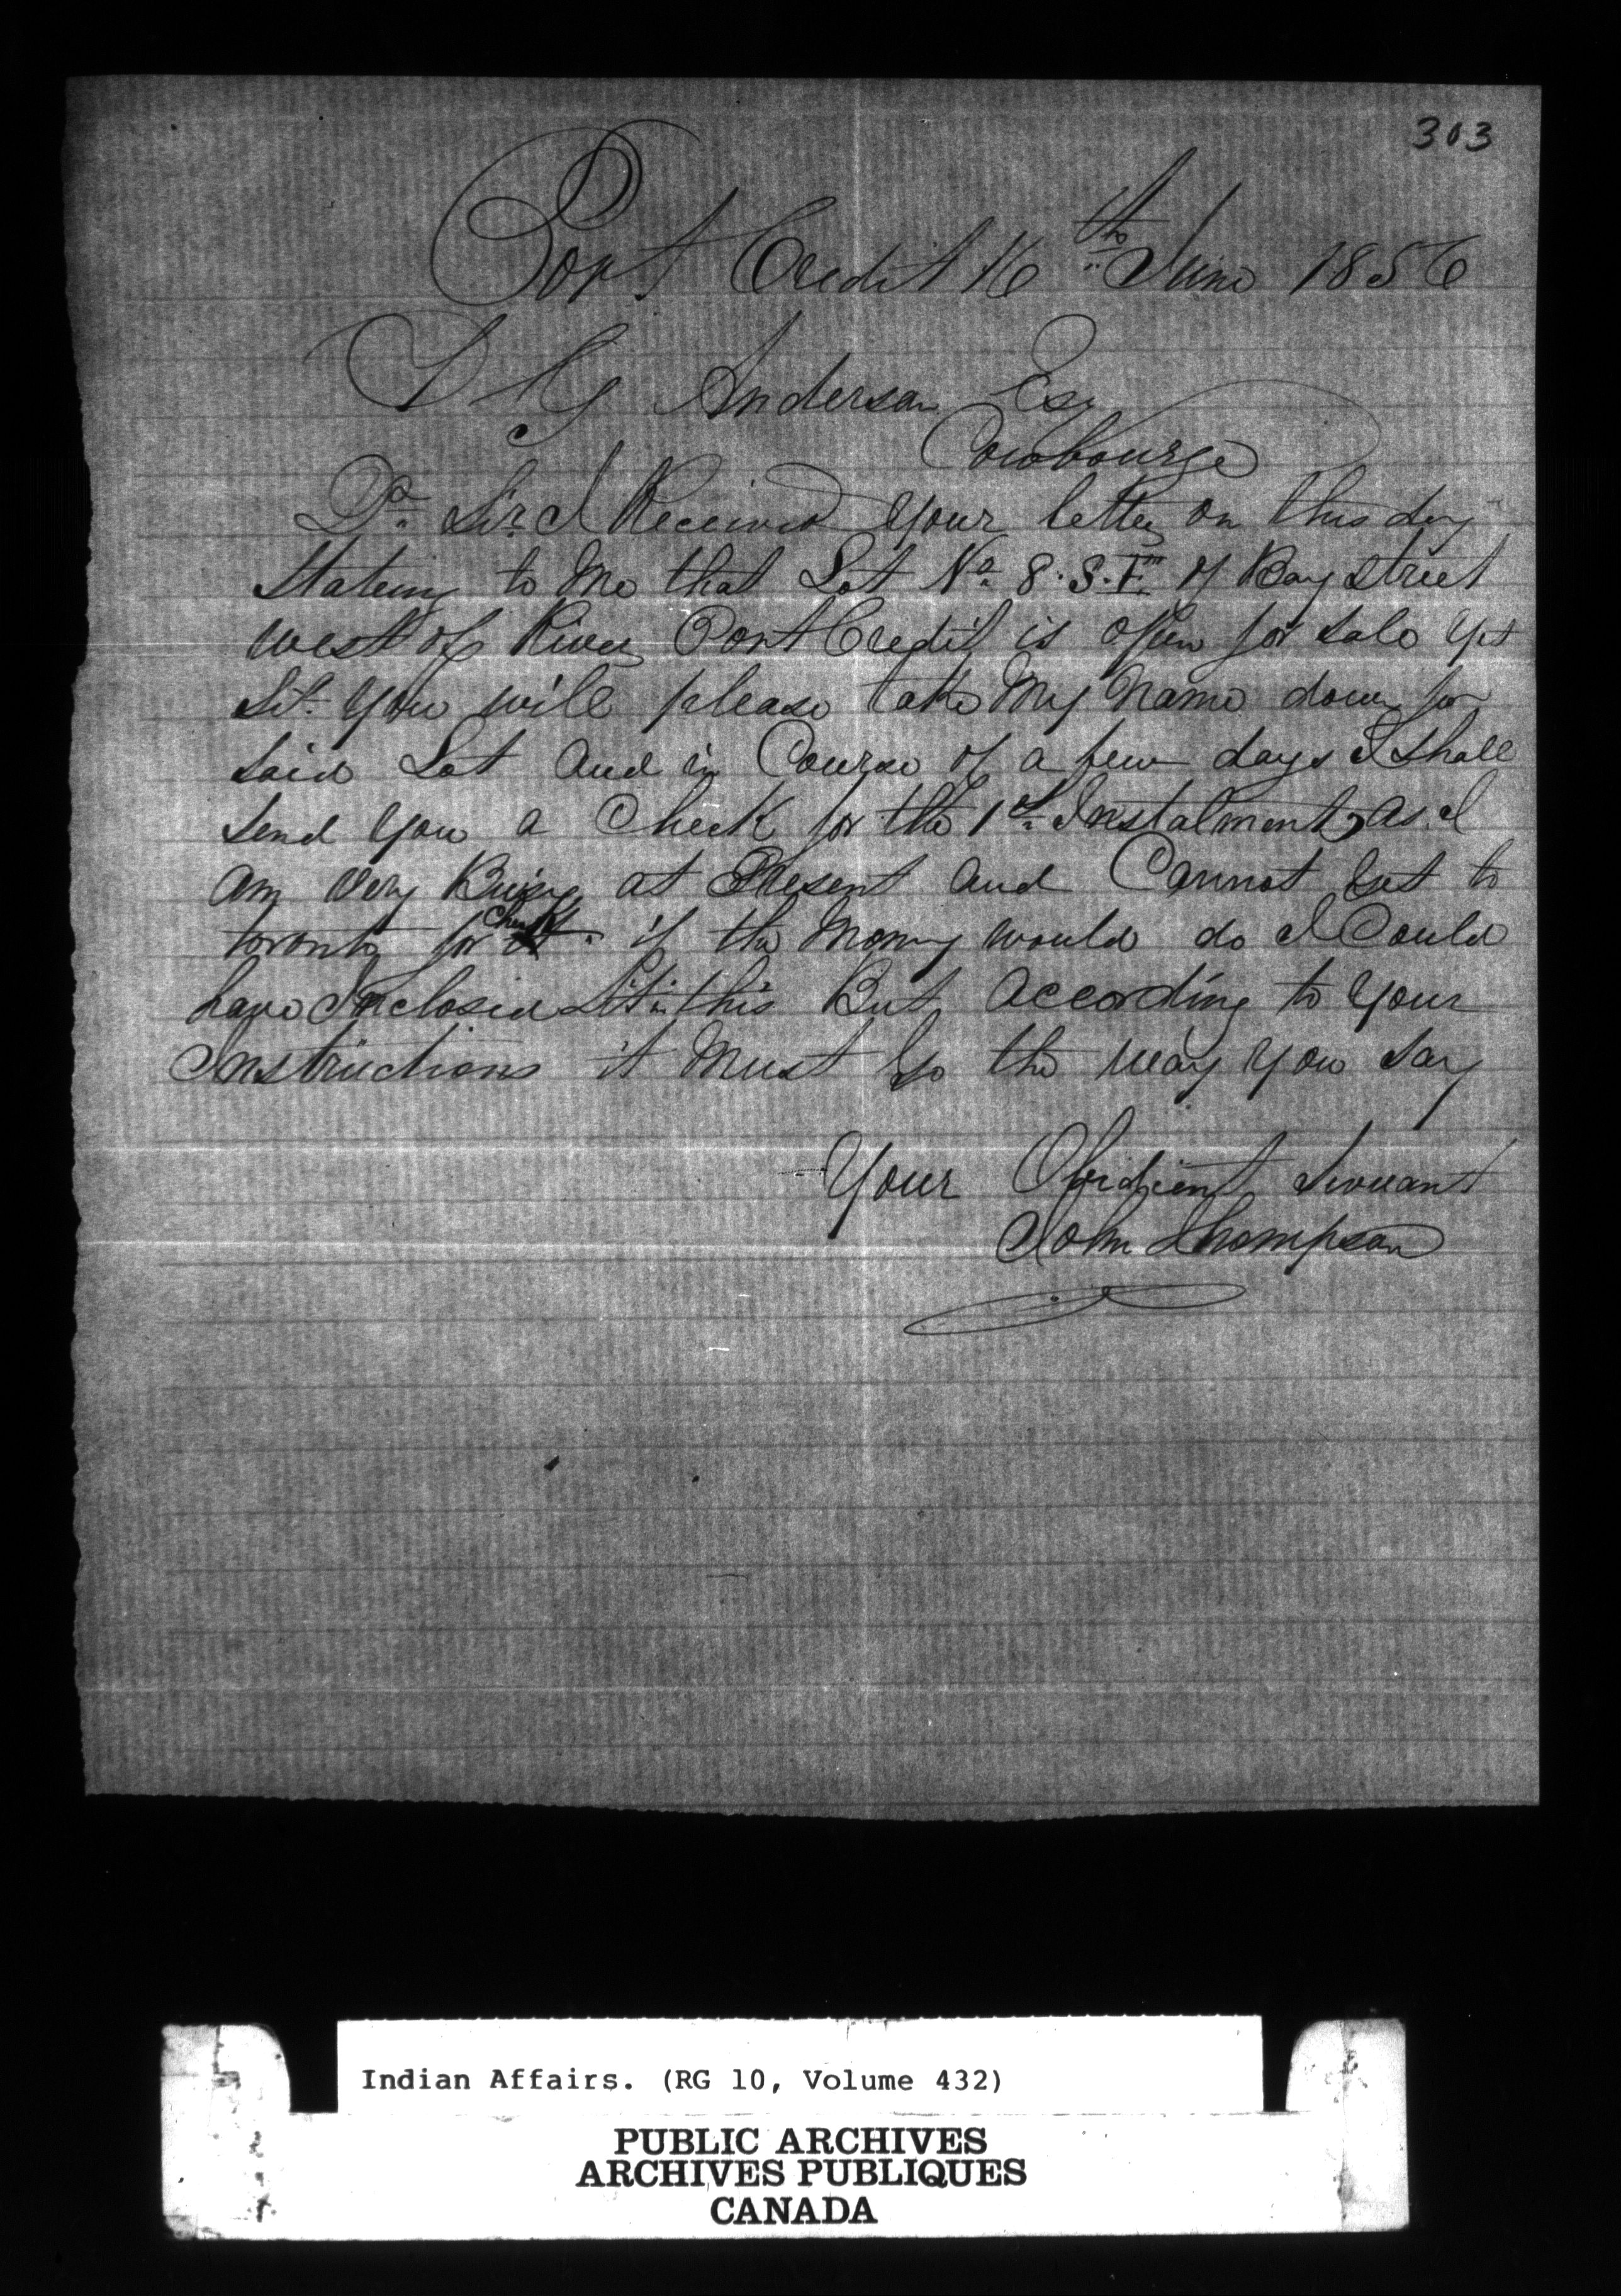 303
Port Credit 16th June 1856
T G Anderson Esq
Cowbourge
Dr. Sir I Received your letter on this day
stateing to Me that Lot No. 8. S. F. of Bay street
west of River Port Credit is open for sale yes
Sir. you will please take My Name down for
said Lot and in Course of a few days I shall
send you a Check for the 1st Instalment, as I
am very Buisy at Present and Cannot get to
toronto for Check. if the Money would do I Could
have Inclosed it in this But according to your
Instructions it Must go the way you say
Your Obidient Servant
John Thompson
Indian Affairs. (RG 10, Volume 432)
PUBLIC ARCHIVES
ARCHIVES PUBLIQUES
CANADA